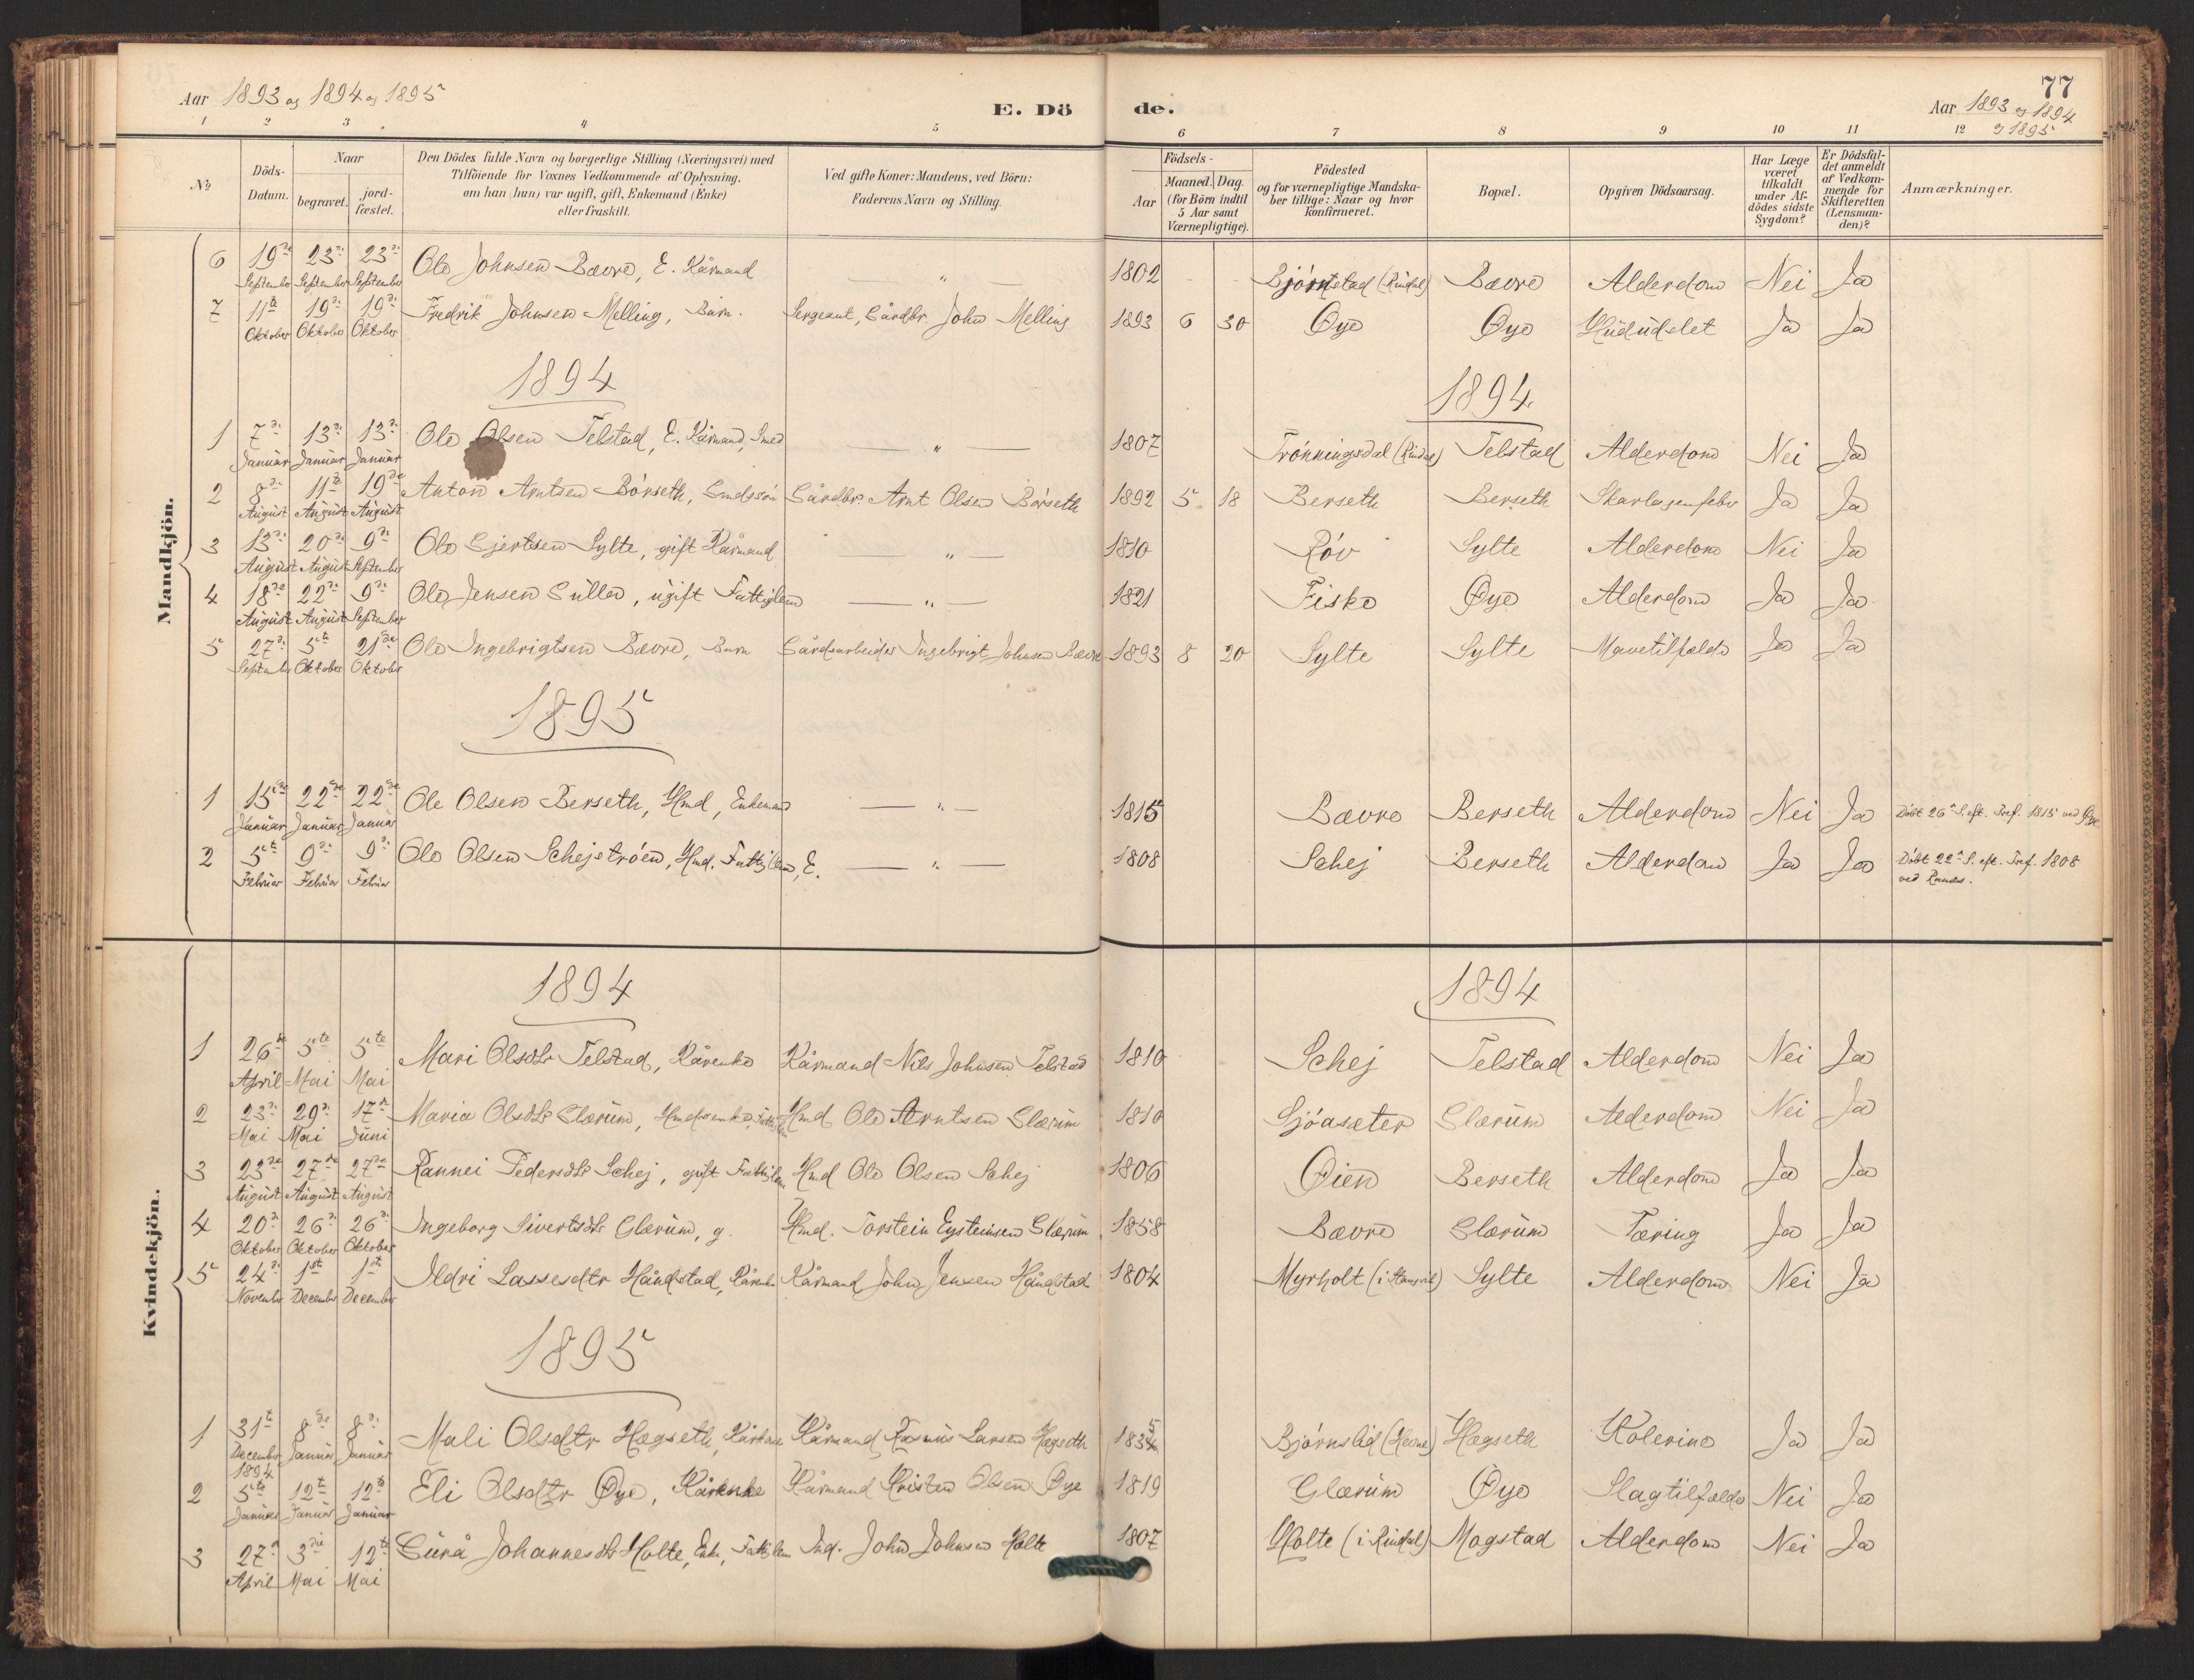 Aar 1893 og 1894 og 1895
E. Dö
de.
77
Aar 1893 og 1894
og 1895
1 2 3 4 5 6 7 8 9 10 11 12
No
Döds-Datum.
Naar
begravet.
jord-fæstet.
Den Dödes fulde Navn og borgerlige Stilling (Næringsvei) med
Tilföiende for Voxnes Vedkommende af Oplysning.
om han (hun) var ugift, gift, Enkemand (Enke)
eller fraskilt.
Ved gifte Koner: Mandens, ved Börn:
Faderens Navn og Stilling.
Födsels-
Aar
Maaned. Dag.
(for Börn indtil
5 Aar samt
Værnepligtige).
Födested
og for værnepligtige Mandska-
ber tillige: Naar og hvor
konfirmeret.
Bopæl.
Opgiven Dödsaarsag.
Har Læge
været
tilkaldt
under Af-
dödes sidste
Sygdom?
Er Dödsfal-
det anmeldt
af Vedkom-
mende for
Skifteretten
(Lensman-
den)?
Anmærkninger.
Mandkjön.
6 19de September 23de September 23de September Ole Johnsen Bævre, E. Kårmand — " — 1802 Bjørnstad (Rindal) Bævre Alderdom Nei Ja
7 11te Oktober 19de Oktober 19de Oktober Fredrik Johnsen Melling, Barn. Sergeant, Gårdbr. John Melling 1893 6 30 Øye Øye Hududslet Ja Ja
1894 1894
1 7de Januar 13de Januar 13de Januar Ole Olsen Telstad, E. Kårmand, Smed — " — 1807 Trønningsdal (Rindal) Telstad Alderdom Nei Ja
2 8de August 11te August 19de August Anton Arntsen Børseth, Gmdssøn Gårdbr. Arnt Olsen Børseth 1892 5 18 Berseth Berseth Skarlagensfeber Ja Ja
3 13de August 20de August 9de September Ole Gjertsen Sylte, gift Kårmand — " — 1810 Røv Sylte Alderdom Nei Ja
4 18de August 22de August 9de September Ole Jensen Gullen, ugift Fattiglem — " — 1821 Fiske Øye Alderdom Ja Ja
5 27de September 5te Oktober 21de Oktober Ole Ingebrigtsen Bævre, Barn Gårdsarbeider Ingebrigt Johnsen Bævre 1893 8 20 Sylte Sylte Mavetilfælde Ja Ja
1895
1 15de Januar 22de Januar 22de Januar Ole Olsen Berseth, Hmd, Enkemand — " — 1815 Bævre Berseth Alderdom Nei Ja Døbt 26de S. eft. Tref. 1815 ved Øye
2 5te Februar 9de Februar 9de Februar Ole Olsen Schejstrøen, Hmd. Fattiglem, E. — " — 1808 Schej Berseth Alderdom Ja Ja Døbt 22de S. eft. Tref. 1808
ved Ranes.
Kvindekjön.
1894 1894
1 26de April 5te Mai 5te Mai Mari Olsdtr Telstad, Kårenke Kårmand Nils Johnsen Telstad 1810 Schej Telstad Alderdom Nei Ja
2 23de Mai 29de Mai 17de Juni Maria Olsdtr Glærum, Hmdsenke, Fattiglem Hmd Ole Arntsen Glærum 1810 Sjøasæter Glærum Alderdom Nei Ja
3 23de August 27de August 27de August Rannei Pedersdtr Schej, gift Fattiglem Hmd Ole Olsen Schej 1806 Øien Berseth Alderdom Ja Ja
4 20de Oktober 26de Oktober 26de Oktober Ingeborg Sivertsdtr Glærum, g. Hmd. Torstein Eysteinsen Glærum 1858 Bævre Glærum Tæring Ja Ja
5 24de November 1ste December 1ste December Ildri Lassesdtr Håndstad, Kårenke Kårmand John Jensen Håndstad 1804 Myrholt (i Stangvik) Sylte Alderdom Nei Ja
1895
1 31te December 1894 8de Januar 8de Januar Mali Olsdtr Hægseth, Kårkone Kårmand Rasmus Larsen Hægseth 1835 Bjørnslid (Hevne) Hægseth Kolerine Ja Ja
2 5te Januar 12te Januar 12te Januar Eli Olsdtr Øye, Kårenke Kårmand Kristen Olsen Øye 1819 Glærum Øye Slagtilfælde Nei Ja
3 27de April 3die Mai 12te Mai Gurå Johannesdtr Holte, Enke, Fattiglem Ind. John Johnsen Holte 1807 Holte (i Rindal) Mogstad Alderdom Nei Ja